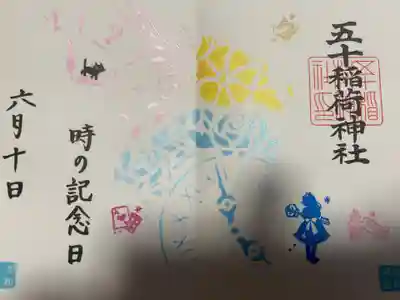 五十稲荷神社
時の記念日
六月十日